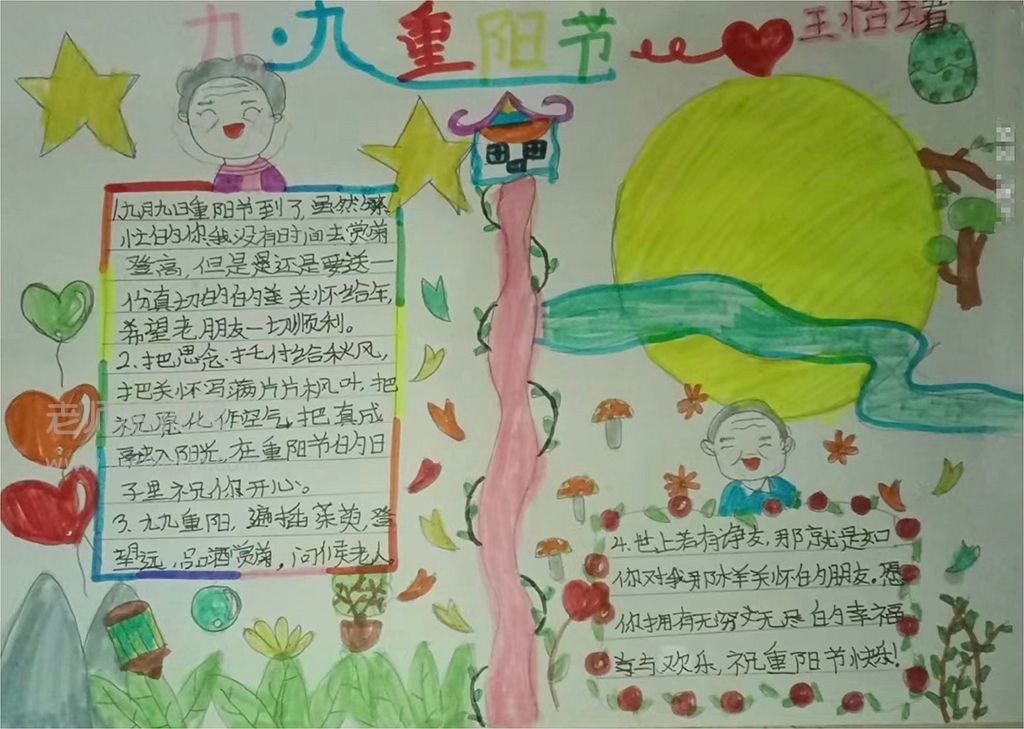 九·九重阳节
王怡
1.九月九日重阳节到了,虽然繁
忙的你我没有时间去赏菊
登高,但是是还是要送一
份真切的的 关怀给年,
希望老朋友一切顺利。
2.把思念托付给秋风,
把关怀写满片片枫叶,把
祝愿化作空气,把真成
融入阳光,在重阳节的日
子里祝你开心。
3.九九重阳,遍插茱萸,登
望远,品酒赏菊,问候老人
4.世上若有诤友,那就是如
你对我那样关怀的朋友。愿
你拥有无穷无尽的幸福
与欢乐,祝重阳节快乐!
老师